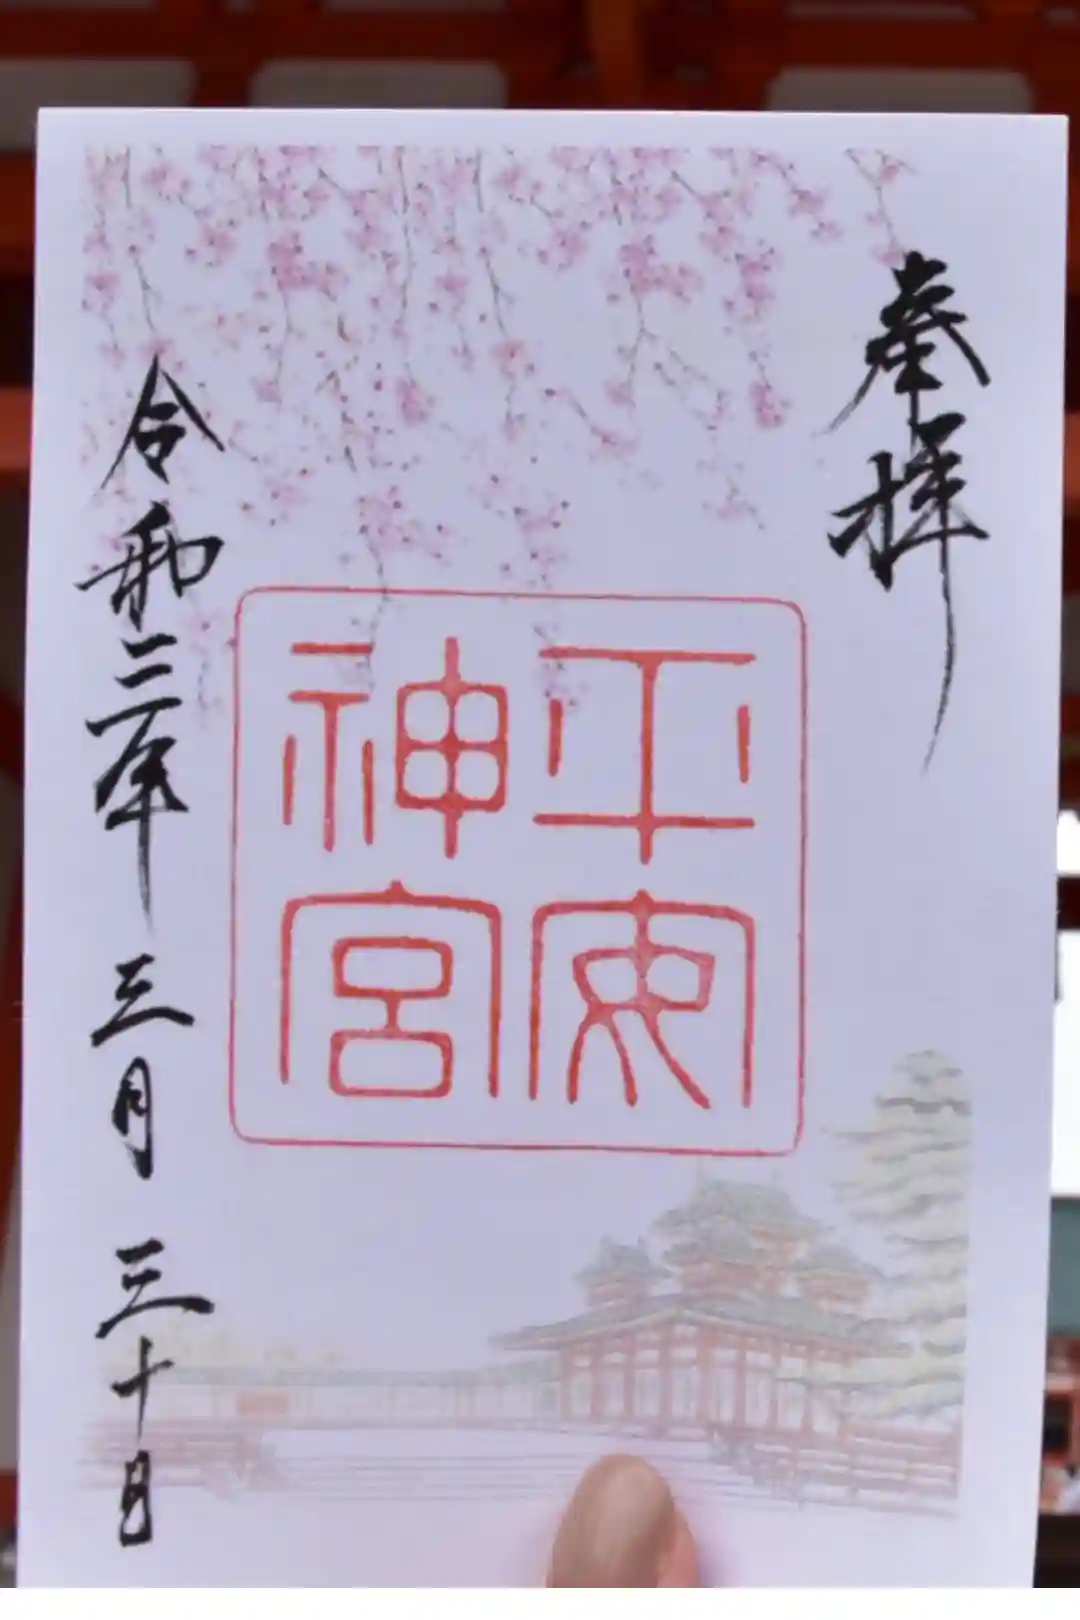 奉拝
平安
神宮
令和三年三月三十日